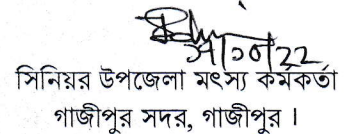 সিনিয়র উপজেলা মৎস্য কর্মকর্তা
গাজীপুর সদর, গাজীপুর ।